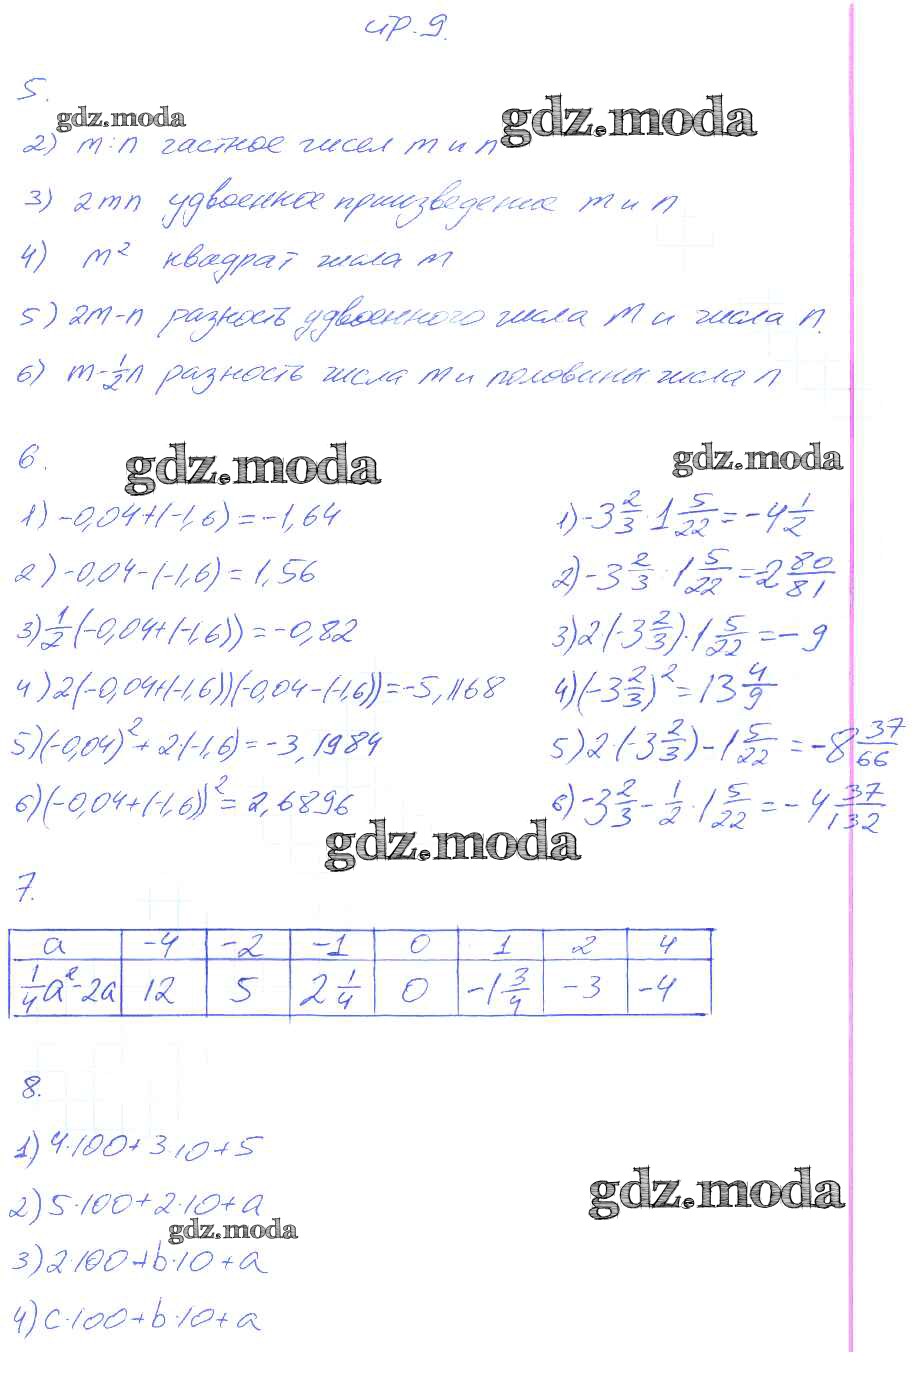 стр. 9.
5.
gdz.moda
gdz.moda
2) m:n частное чисел m и n
3) 2mn удвоенное произведение m и n
4) m² квадрат числа m
5) 2m-n разность удвоенного числа m и числа n.
6) m-1/2n разность числа m и половины числа n
6.
gdz.moda
gdz.moda
1) -0,04+(-1,6)=-1,64
2) -0,04-(-1,6)=1,56
3) 1/2(-0,04+(-1,6))=-0,82
4) 2(-0,04+(-1,6))(-0,04-(-1,6))=-5,1168
5) (-0,04)²+2·(-1,6)=-3,1984
6) (-0,04+(-1,6))²=2,6896
1) -3 2/3·1 5/22=-4 1/2
2) -3 2/3:1 5/22=-2 80/81
3) 2(-3 2/3)·1 5/22=-9
4) (-3 2/3)²=13 4/9
5) 2·(-3 2/3)-1 5/22=-8 37/66
6) -3 2/3-1/2·1 5/22=-4 37/132
gdz.moda
7.
a -4 -2 -1 0 1 2 4
1/4a²-2a 12 5 2 1/4 0 -1 3/4 -3 -4
8.
1) 4·100+3·10+5
2) 5·100+2·10+a
gdz.moda
gdz.moda
3) 2·100+b·10+a
4) c·100+b·10+a